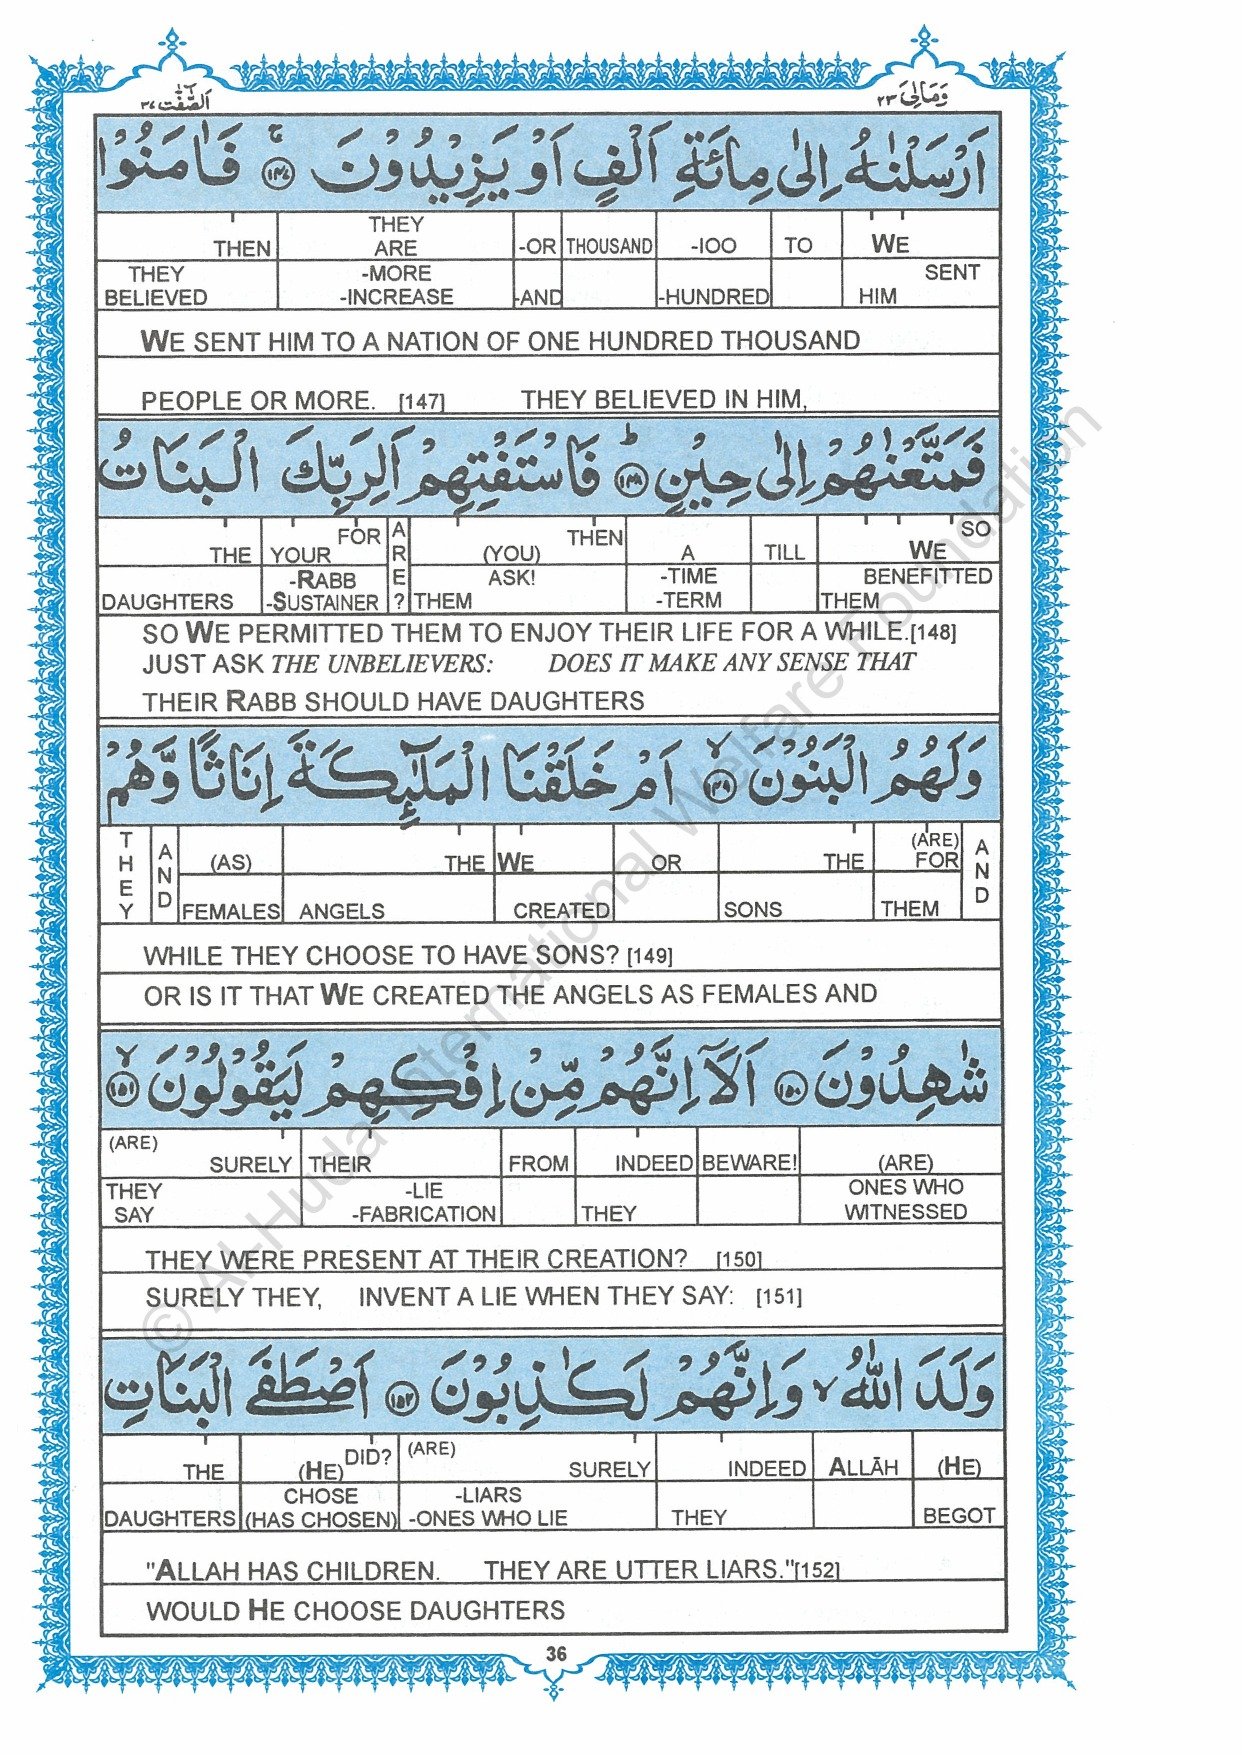 وَمَالِيَ ٢٣
اَلصّٰفّٰت ٣٧
اَرْسَلْنٰهُ اِلٰى مِائَةِ اَلْفٍ اَوْ يَزِيْدُوْنَ ﴿١٤٧﴾ فَاٰمَنُوْا
THEN THEY ARE -OR THOUSAND -IOO TO WE
THEY BELIEVED -MORE -INCREASE -AND -HUNDRED HIM SENT
WE SENT HIM TO A NATION OF ONE HUNDRED THOUSAND
PEOPLE OR MORE. [147] THEY BELIEVED IN HIM,
فَمَتَّعْنٰهُمْ اِلٰى حِيْنٍ ﴿١٤٨﴾ فَاسْتَفْتِهِمْ اَلِرَبِّكَ الْبَنَاتُ
THE FOR YOUR ARE? THEN (YOU) A TILL SO WE
DAUGHTERS -RABB -SUSTAINER ASK! THEM -TIME -TERM BENEFITTED THEM
SO WE PERMITTED THEM TO ENJOY THEIR LIFE FOR A WHILE.[148]
JUST ASK THE UNBELIEVERS: DOES IT MAKE ANY SENSE THAT
THEIR RABB SHOULD HAVE DAUGHTERS
وَلَهُمُ الْبَنُوْنَ ﴿١٤٩﴾ اَمْ خَلَقْنَا الْمَلٰٓئِكَةَ اِنَاثًا وَّهُمْ
THEY AND (AS) THE WE OR THE (ARE) FOR AND
FEMALES ANGELS CREATED SONS THEM
WHILE THEY CHOOSE TO HAVE SONS? [149]
OR IS IT THAT WE CREATED THE ANGELS AS FEMALES AND
شٰهِدُوْنَ ﴿١٥٠﴾ اَلَاۤ اِنَّهُمْ مِّنْ اِفْكِهِمْ لَيَقُوْلُوْنَ ﴿١٥١﴾
(ARE) SURELY THEIR FROM INDEED BEWARE! (ARE)
THEY SAY -LIE -FABRICATION THEY ONES WHO WITNESSED
THEY WERE PRESENT AT THEIR CREATION? [150]
SURELY THEY, INVENT A LIE WHEN THEY SAY: [151]
وَلَدَ اللّٰهُ وَاِنَّهُمْ لَكٰذِبُوْنَ ﴿١٥٢﴾ اَصْطَفَى الْبَنَاتِ
THE DID? (HE) (ARE) SURELY INDEED ALLĀH (HE)
DAUGHTERS CHOSE (HAS CHOSEN) -LIARS -ONES WHO LIE THEY BEGOT
"ALLAH HAS CHILDREN. THEY ARE UTTER LIARS."[152]
WOULD HE CHOOSE DAUGHTERS
36
© Al-Huda International Welfare Foundation